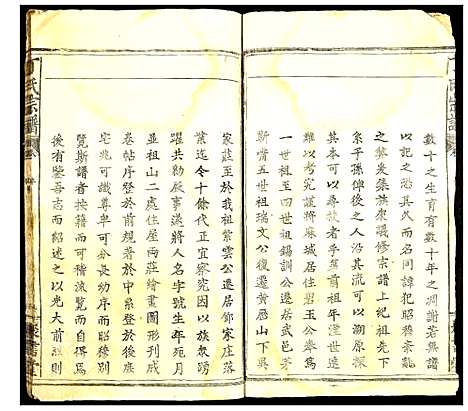 數十之生育有數十年之凋謝若無譜
以記之恐其久而名同諱犯昭穆紊亂
之弊爰集族衆議修宗譜上紀祖先下
系子孫俾後之人沿流可以溯原探
其本可以尋枝者乎第前祖年湮世遠
難以考究謹將麻城居住岩玉公奉爲
一世祖至四世祖錫訓公遷居武邑茅
斯嘗五世祖瑞文公復遷黃歷山吳
家莊至於我祖紫雲公遷居鄧家庄落
業迄今十餘代正宜察究因以族衆踴
躍共勷厥事謹將人名字號生年死月
並祖山二處住屋兩莊繪畫圖形刊成
卷帖序登於前規著於中系登於後庶
宅兆可識尊卑可分長幼序而昭穆明
覽斯譜者按籍而可稽流覽而自得爲
後有賢吾志而紹述之以光大前烈則
丁氏宗譜